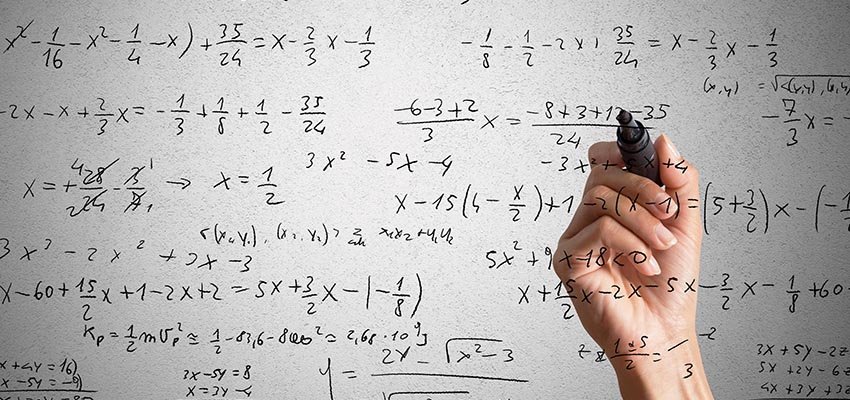 x² - 1/16 - x² - 1/4 - x) + 35/24 = x - 2/3 x - 1/3
- 1/8 - 1/2 - 2x + 35/24 = x - 2/3 x - 1/3
(x,y) = √<(x,y),
-2x - x + 2/3 x = - 1/3 + 1/8 + 1/2 - 35/24
-6-3+2/3 x = -8+3+12-35/24
- 7/3 x = -
3x² - 5x - 4
-3x² + 5x + 4
x = + 28/24 · 3/7 → x = 1/2
x - 15(4 - x/2) + 1 - 2(x-1) = (5 + 3/2)x - (- 1
<(x₁,y₁), (x₂,y₂)> x₁x₂ + y₁y₂
3x³ - 2x² + x - 3
5x² + 9x - 18 < 0
x - 60 + 15/2 x + 1 - 2x + 2 = 5x + 3/2 x - (- 1/8)
x + 15/2 x - 2x - 5x - 3/2 x - 1/8 + 60
Kp = 1/2 mVp² ≅ 1/2 · 83,6 - 800² ≅ 2,68 · 10⁹ J
y = 2x - √x² - 3
1±5/2 = -2
3
x + 4y = 16)
x - 5y = -9)
3x - 5y = 8
x = 3y - 4
3x + 5y - 2z
5x + 2y - 6z
4x + 3y +